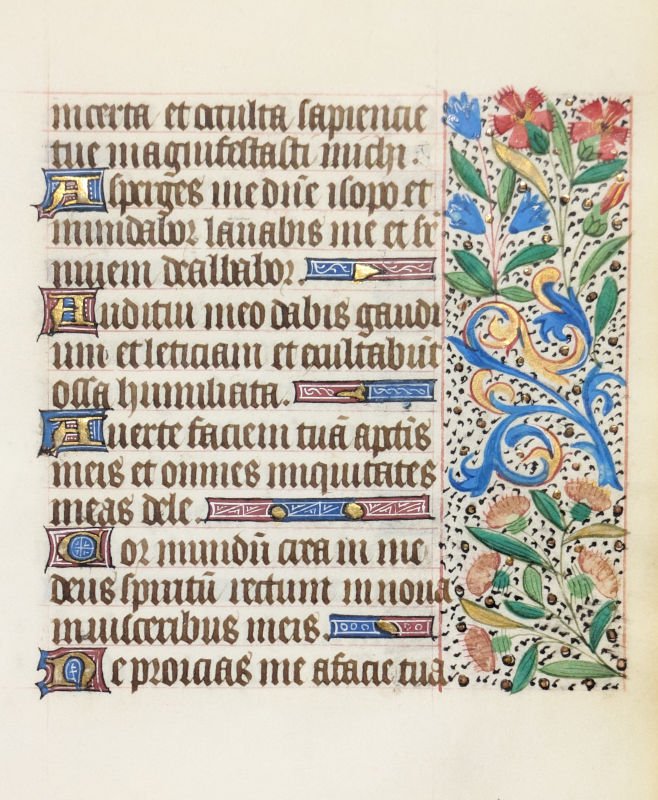 incerta et oculta sapiencie
tue magnifestasti michi.
Asperges me dñe isopo et
mundabor lavabis me et su
nivem dealbabor.
Auditui meo dabis gaudi
um et leticiam et exultabũt
ossa humiliata.
Averte faciem tuã a pctis
meis et omnes iniquitates
meas dele.
Cor mundũ crea in me
deus spiritũ rectum innova
in visceribus meis.
Ne proicias me a facie tua